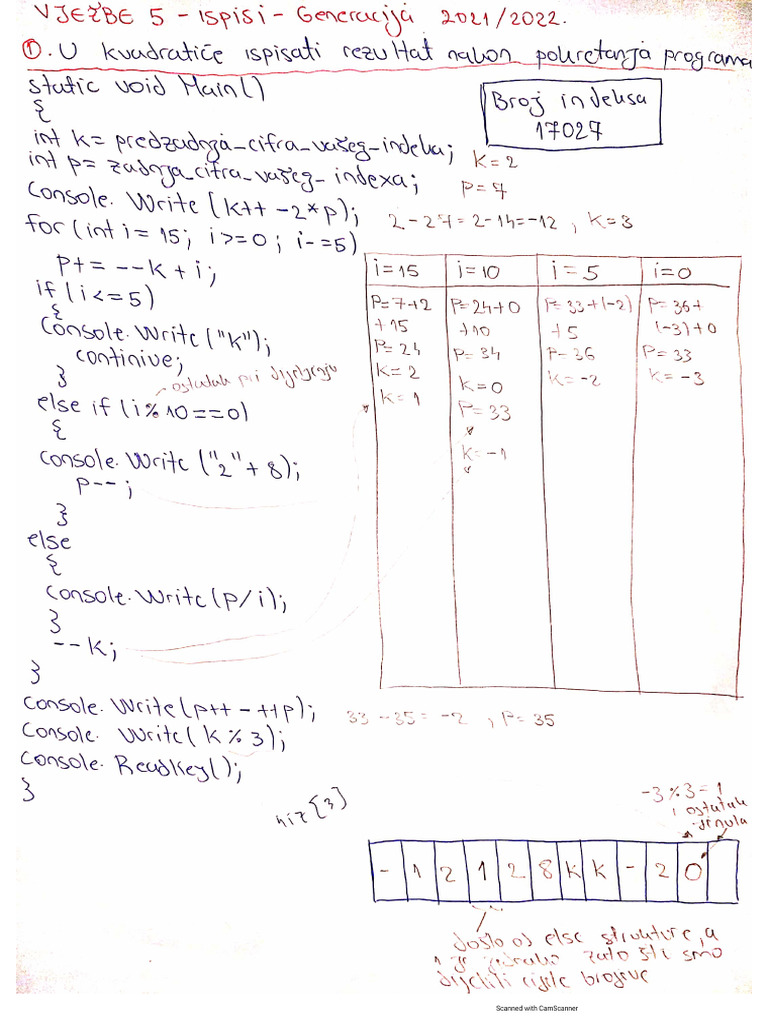 VJEŽBE 5 - Ispisi - Generacija 2021/2022.
①. U kvadratiće ispisati rezultat nakon pokretanja programa
static void Main()
{
Broj indeksa
17027
int k= predzadnja_cifra_vašeg_indeksa;
int p= zadnja_cifra_vašeg_indexa;
K=2
p=7
Console. Write (k++ -2*p);
2-2*7=2-14=-12, K=3
for (int i=15; i>=0; i-=5)
{
p+= --k + i;
if (i<=5)
{
Console.Write("K");
continive;
}
ostatak pri dijeljenju
else if (i%10==0)
{
Console.Write ("2"+8);
p--;
}
else
{
Console.Write(p/i);
}
--k;
}
i=15 i=10 i=5 i=0
P=7+2 P=24+0 P=33+(-2) P=36+
+15 +10 +5 (-3)+0
P=24 P=34 P=36 P=33
K=2 K=0 K=-2 K=-3
K=1 P=33
K=-1
Console.Write(p++ - ++p);
33-35=-2, P=35
Console. Write(k%3);
Console.ReadKey();
}
niz[3]
-3%3=1
i ostatak
0
- 1 2 1 2 8 K K - 2 0
došlo od else strukture, a
1 je zato što smo
dijelili cijele brojeve
Scanned with CamScanner